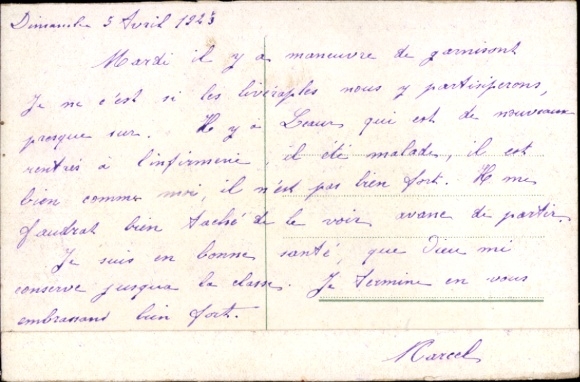 Dimanche 5 Avril 1925
Mardi il y a manœuvre de garnisont
Je ne c'est si les libérables nous y partisiperons,
presque sur. Il y a Leaux qui est de nouveaux
rentrés à l'infirmerie, il été malade, il est
bien comme moi, il n'est pas bien fort. Il me
faudrat bien taché de le voir avanc de partir.
Je suis en bonne santé, que Dieu mi
conserve jusqua la classe. Je termine en vous
embrassand bien fort.
Marcel